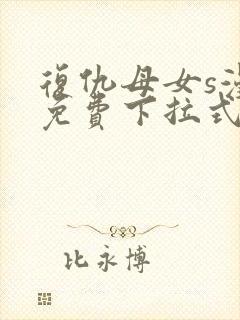 復仇母女s
免費下拉式
比永博